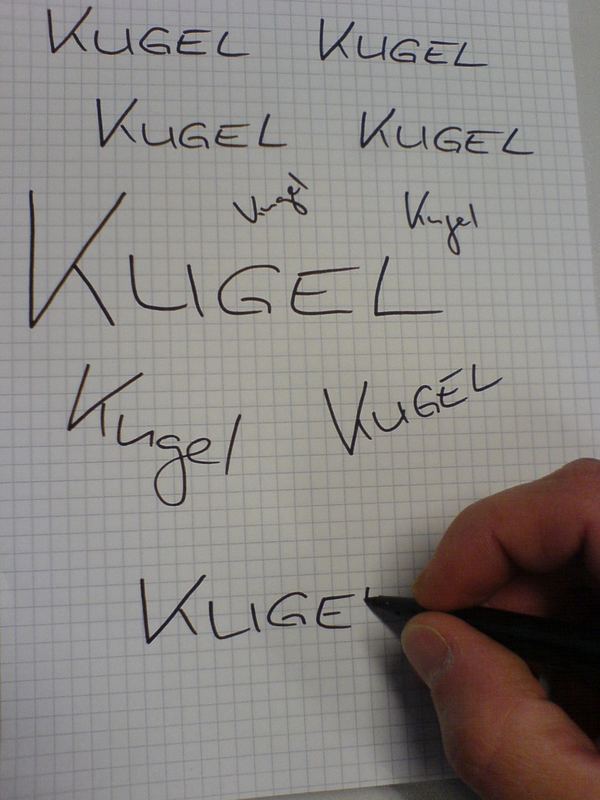 KUGEL KUGEL
KUGEL KUGEL
Kugel Kugel
KUGEL
Kugel KUGEL
KUGE